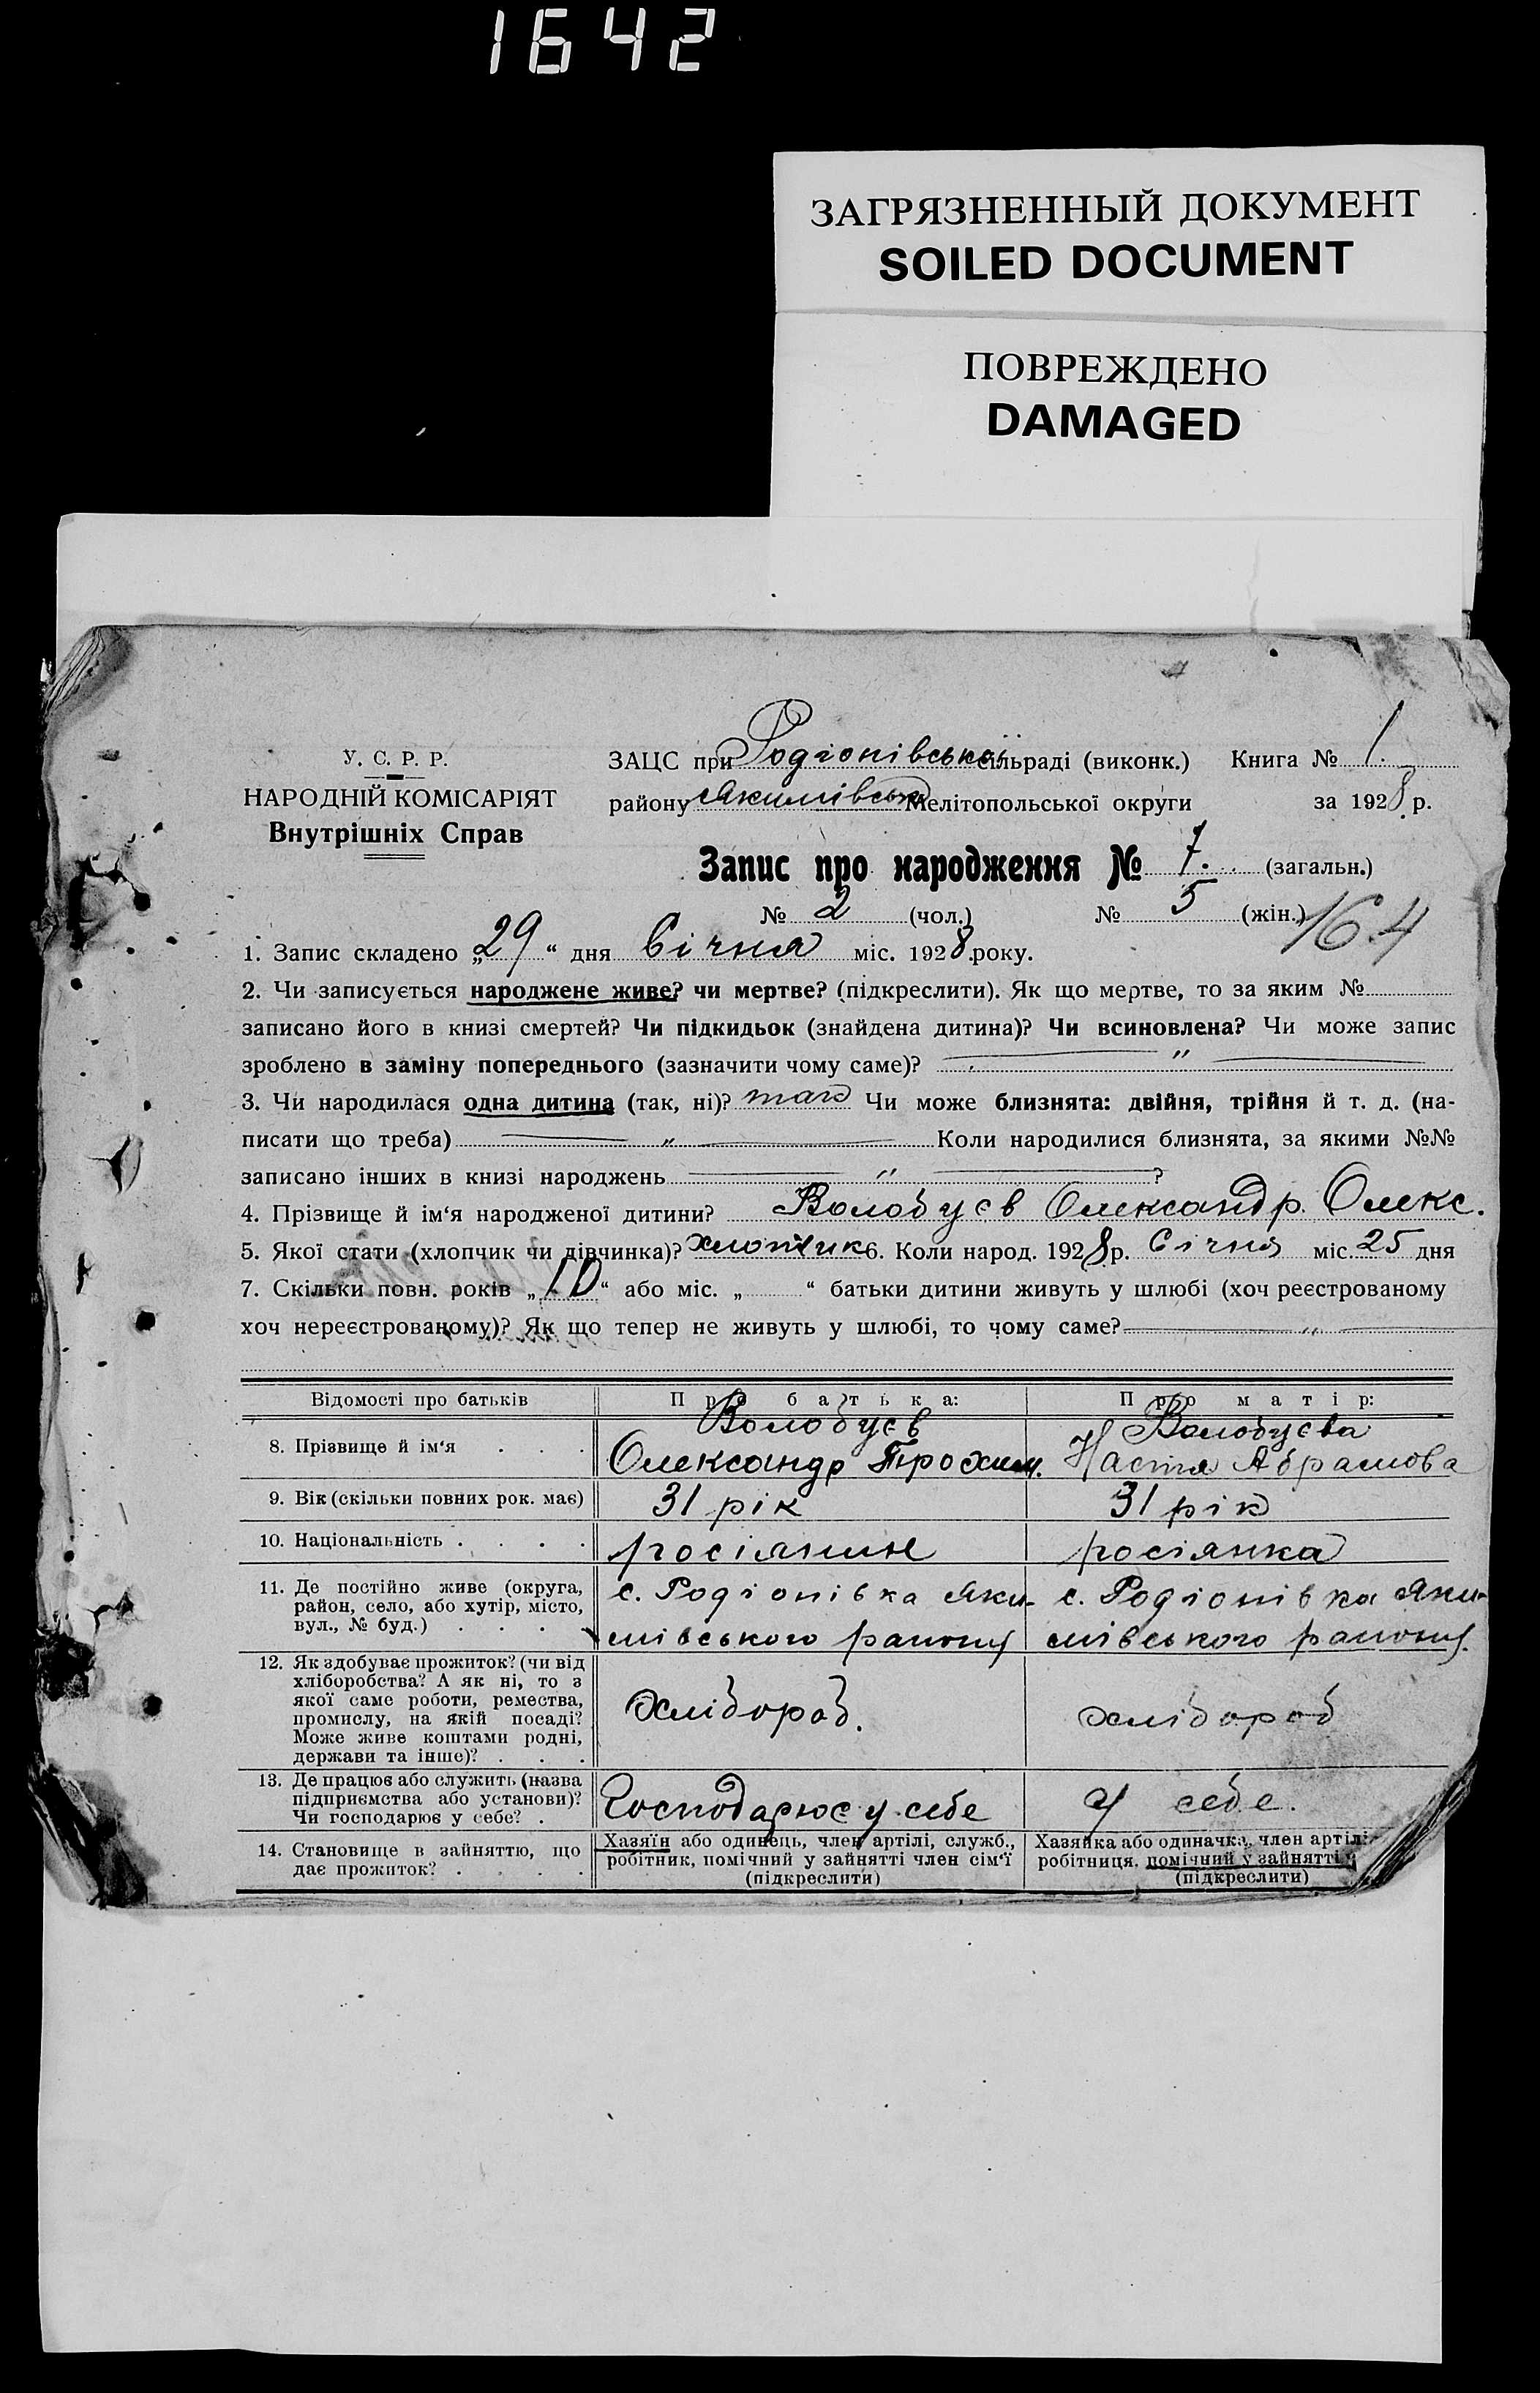 1642
ЗАГРЯЗНЕННЫЙ ДОКУМЕНТ
SOILED DOCUMENT
ПОВРЕЖДЕНО
DAMAGED
У. С. Р. Р.
НАРОДНІЙ КОМІСАРІЯТ
Внутрішніх Справ
ЗАЦС при Родіонівській сільраді (виконк.) Книга № 1.
району Якимівськ Мелітопольської округи за 1928 р.
Запис про народження № 7. (загальн.)
№ 2 (чол.) № 5 (жін.) 164
1. Запис складено „29“ дня Січня міс. 1928 року.
2. Чи записується народжене живе? чи мертве? (підкреслити). Як що мертве, то за яким №
записано його в книзі смертей? Чи підкидьок (знайдена дитина)? Чи всиновлена? Чи може запис
зроблено в заміну попереднього (зазначити чому саме)? — „ —
3. Чи народилася одна дитина (так, ні)? так Чи може близнята: двійня, трійня й т. д. (на-
писати що треба) — „ — Коли народилися близнята, за якими №№
записано інших в книзі народжень — „ — ?
4. Прізвище й ім‘я народженої дитини? Волобуєв Олександр. Олекс.
5. Якої стати (хлопчик чи дівчинка)? хлопчик 6. Коли народ. 1928 р. Січня міс. 25 дня
7. Скільки повн. років „10“ або міс. „ “ батьки дитини живуть у шлюбі (хоч реєстрованому
хоч нереєстрованому)? Як що тепер не живуть у шлюбі, то чому саме? — „ —
Відомості про батьків Про батька: Про матір:
8. Прізвище й ім‘я . . . Волобуєв Волобуєва
Олександр Трохим. Настя Абрамова
9. Вік (скільки повних рок. має) 31 рік 31 рік
10. Національність . . . . росіянин росіянка
11. Де постійно живе (округа, район, село, або хутір, місто, вул., № буд.) . . . . с. Родіонівка Яки- с. Родіонівка Яки-
мівського району мівського району.
12. Як здобуває прожиток? (чи від
хліборобства? А як ні, то з
якої саме роботи, ремества,
промислу, на якій посаді?
Може живе коштами родні,
держави та інше)? . . . хлібороб. хлібороб
13. Де працює або служить (назва
підприємства або установи)?
Чи господарює у себе? . Господарює у себе У себе.
14. Становище в зайняттю, що
дає прожиток? . . . .
Хазяїн або одинець, член артілі, служб.,
робітник, помічний у зайнятті член сім‘ї
(підкреслити)
Хазяйка або одиначка, член артілі
робітниця, помічний у зайнятті
(підкреслити)